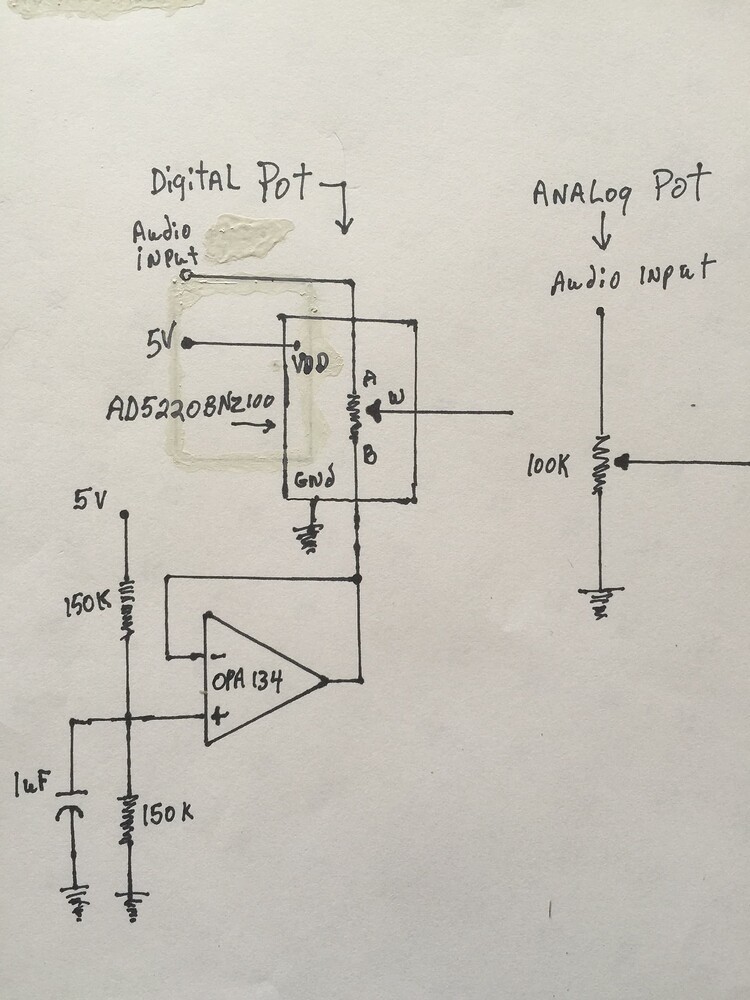 Digital Pot
ANALog Pot
Audio
iNput
Audio INput
5V
VDD
A
W
AD5220BNZ100
B
100K
GNd
5V
150K
-
OPA 134
+
1uF
150K